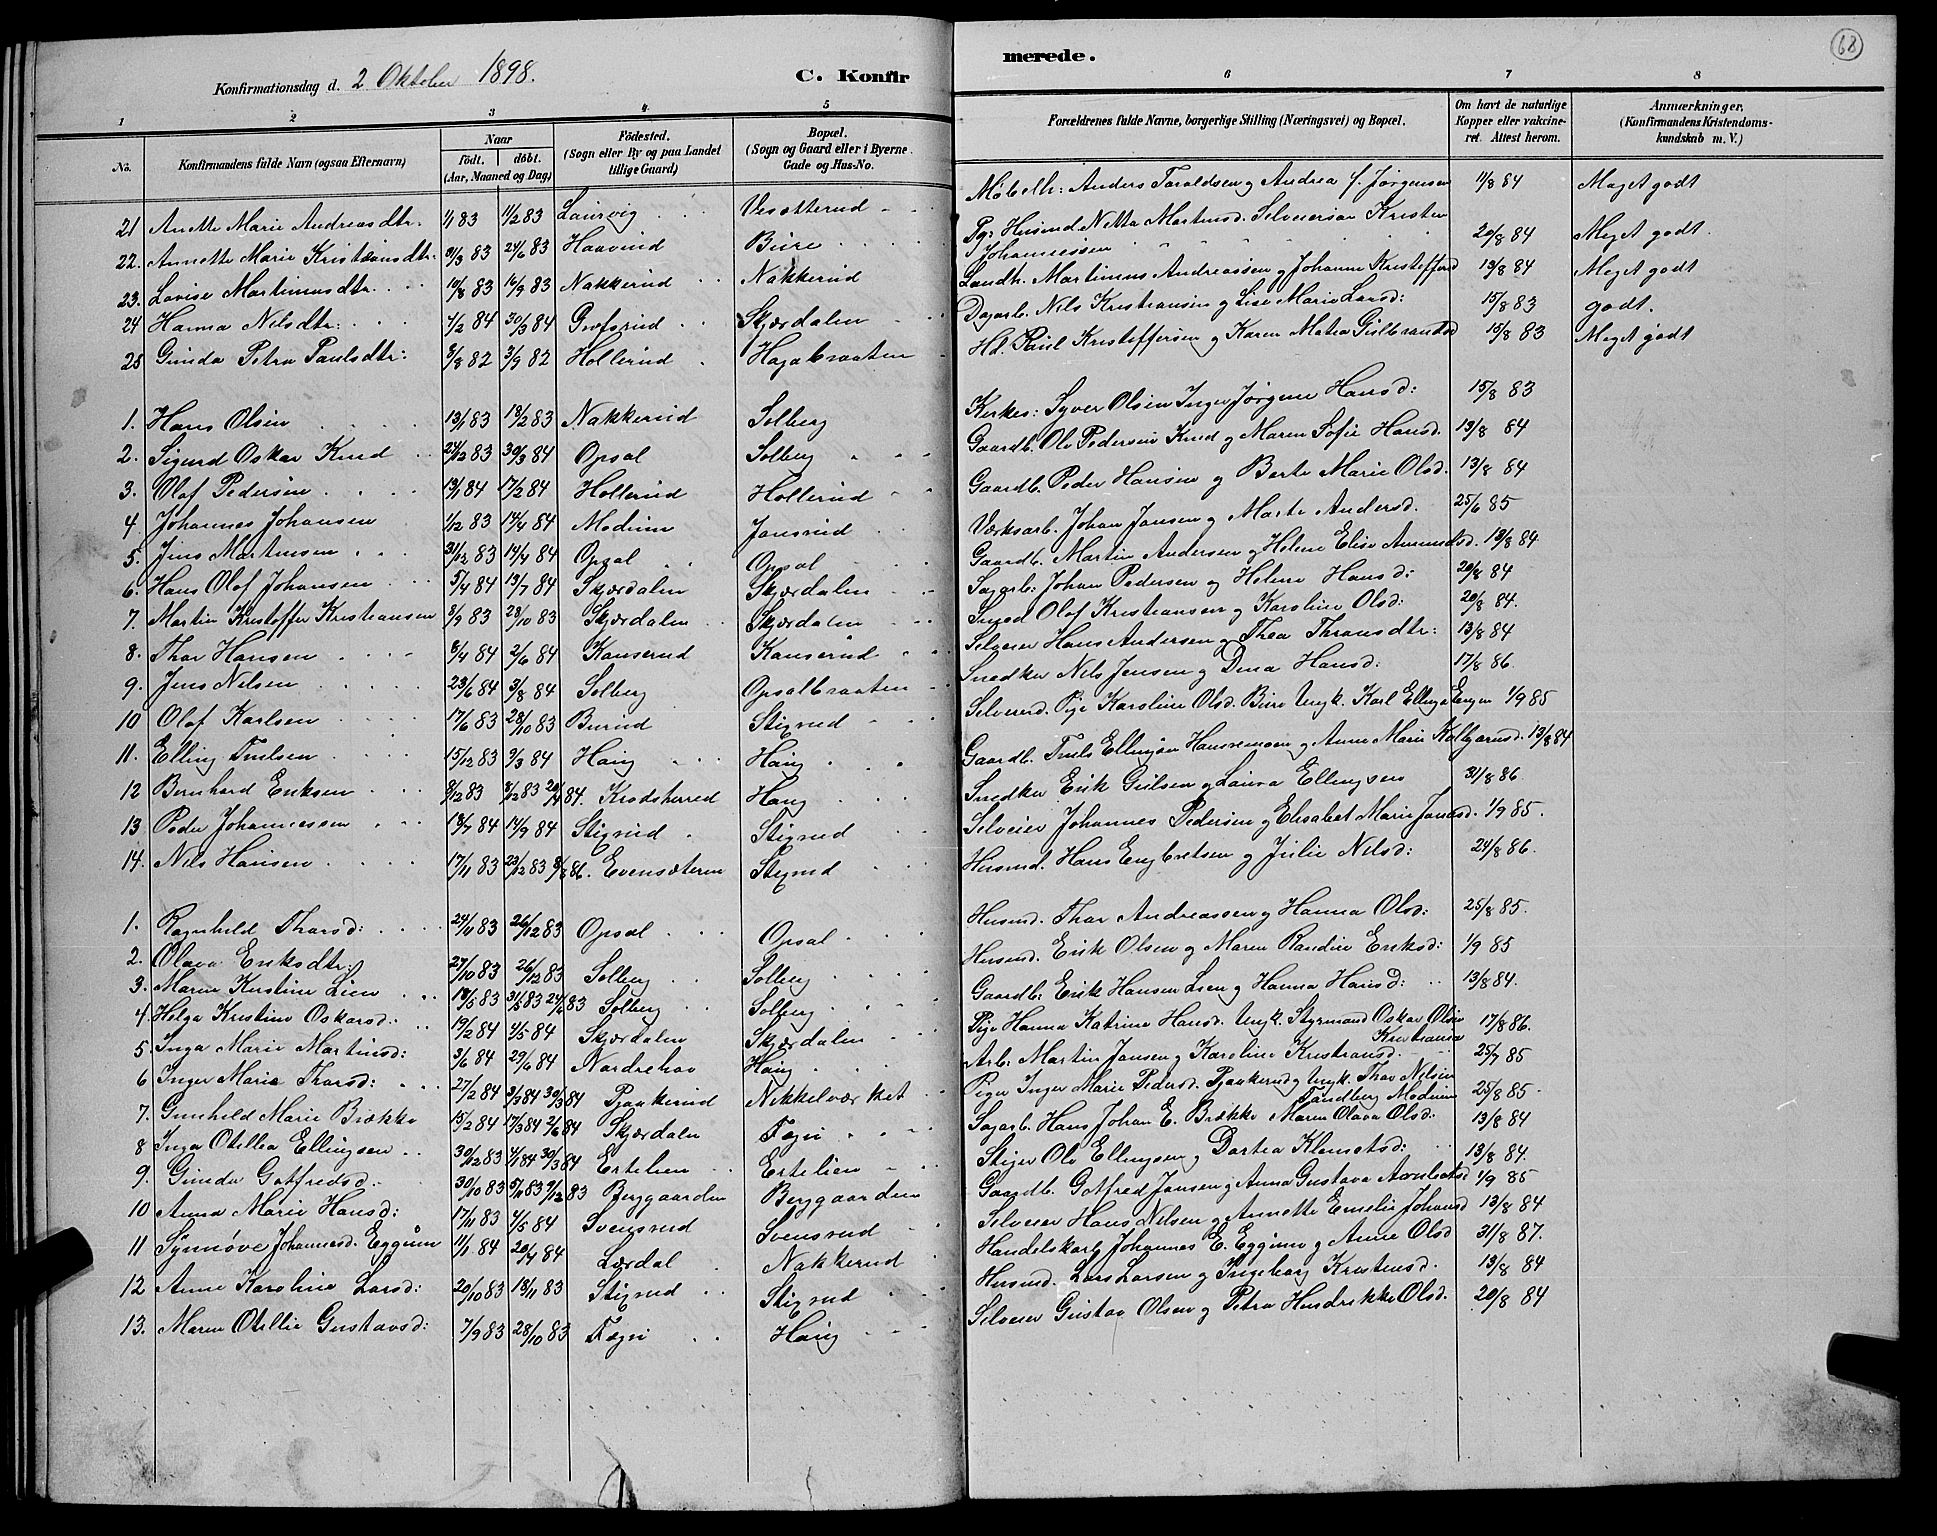 68
Konfirmationsdag d. 2 Oktober 1898.
C. Konfirmerede.
1 2 3 4 5 6 7 8
No. | Konfirmandens fulde Navn (ogsaa Efternavn) | Naar födt. döbt. (Aar, Maaned og Dag) | Födested. (Sogn eller By og paa Landet tillige Gaard) | Bopæl. (Sogn og Gaard eller i Byerne Gade og Hus-No. | Forældrenes fulde Navne, borgerlige Stilling (Næringsvei) og Bopæl. | Om havt de naturlige Kopper eller vakcineret. Attest herom. | Anmærkninger, (Konfirmandens Kristendomskundskab m. V.)
21 Anette Marie Andreasdtr. 1/1 83 11/2 83 Laurvig Vesætterud Möbelh: Anders Taraldsen og Andrea f. Jørgensen 11/8 84 Meget godt
22. Annette Marie Kristiansdtr. 31/3 83 24/6 83 Haavind Bure Pg: Husmd Netta Martinsd. Selveiersøn Kristen Johannessen 20/8 84 Meget godt.
23. Lovise Martinusdtr. 10/8 83 16/9 83 Nakkerud Nakkerud Landh. Martinus Andreassen og Johanne Kristoffersd 13/8 84 Meget godt
24 Hanna Nilsdtr: 4/2 84 30/3 84 Grøfsrud Skjærdalen Dagarb. Nils Kristiansen og Lise Marie Larsd: 15/8 83 godt.
25 Gunda Petra Paulsdtr: 8/8 82 3/9 82 Hollerud Hagabraaten Hd. Paul Kristoffersen og Karen Matea Gulbrandsd 15/8 83 Meget godt
1. Hans Olsen 13/1 83 18/2 83 Nakkerud Solberg Kirkes: Syver Olsen Inger Jørgine Hansd: 15/8 83
2. Sigurd Oskar Knud 24/12 83 30/3 84 Opsal Solberg Gaardb. Ole Pedersen Knud og Maren Sofie Hansd. 13/8 84
3. Olaf Pedersen 13/1 84 17/2 84 Hollerud Hollerud Gaardb. Peder Hansen og Berte Marie Olsd. 13/8 84
4 Johannes Johansen 1/12 83 14/4 84 Modum Jonsrud Værksarb. Johan Jansen og Marte Andersd. 25/6 85
5. Jens Martinsen 31/12 83 14/4 84 Opsal Opsal Gaardb. Martin Andersen og Helene Elise Amundsd. 13/8 84
6. Hans Olaf Johansen 5/4 84 13/7 84 Skjærdalen Skjærdalen Sagarb: Johan Pedersen og Helene Hansd: 20/8 84
7. Martin Kristoffer Kristiansen 8/9 83 28/10 83 Skjærdalen Skjærdalen Smed Olaf Kristiansen og Karoline Olsd: 20/8 84.
8. Thor Hansen 8/4 84 2/6 84 Kanserud Kanserud Selveier Hans Andersen og Thea Thronsdtr: 13/8 84
9. Jens Nilsen 23/6 84 3/8 84 Solberg Opsalbraaten Snedker Nils Jensen og Dina Hansd: 17/8 86.
10 Olaf Karlsen 17/6 83 28/10 83 Burud Stigrud Selveierd. Pige Karoline Olsd. Bure Ungk. Karl Ellingsen 1/9 85
11. Elling Truelsen 15/12 83 9/3 84 Haug Haug Gaardb. Truls Ellingsen Hansremoen og Anne Marie Kolbjørnsd. 13/8 84
12 Bernhard Eriksen 8/12 83 8/12 83 20/4 84. Krodsherred Haug Snedker Erik Guldsen og Laura Ellingsen 31/8 86.
13 Peder Johannessen 18/7 84 14/9 84 Stigrud Stigrud Selveier Johannes Pedersen og Elisabet Marie Jansd. 1/9 85.
14. Nils Hansen 17/11 83 23/12 83 8/8 86. Evensæteren Stigrud Husmd. Hans Engbretsen og Julie Nilsd: 24/8 86.
1. Ragnhild Thorsd: 24/11 83 26/12 83 Opsal Opsal Husmd. Thor Andreassen og Hanna Olsd: 25/8 85.
2. Olava Eriksdtr: 27/10 83 26/12 83 Solberg Solberg Husmd. Erik Olsen og Maren Randine Eriksd: 1/9 85
3. Maren Kirstine Lien 18/5 83 31/5 83 24/6 83 Solberg Solberg Gaardb: Erik Hansen Lien og Hanna Hansd: 13/8 84.
4. Helga Kristine Oskarsd: 19/2 84 4/5 84 Skjærdalen Skjærdalen Pige Hanna Katrine Hansd. Ungk. Styrmand Oskar Olsen Kristiania 17/8 86.
5. Inga Marie Martinsd: 3/6 84 29/6 84 Nordrehov Haug Arb: Martin Jansen og Karoline Kristiansd. 25/7 85
6 Inger Marie Thorsd: 27/2 84 3/3 84 30/3 84 Pjaakerud Nikkelværket Pige Inger Marie Pedersd. Pjaakerud og Ungk. Thor Nilsen Sandberg Modum 25/8 85.
7. Gunhild Marie Brække 15/2 84 17/3 84 2/6 84 Skjærdalen Fegri Sagarb. Hans Johan E. Brække Maren Olava Olsd: 13/8 84
8 Inga Otellea Ellingsen 30/12 83 4/1 84 30/3 84 Ertelien Ertelien Stiger Ole Ellingsen og Dortea Klemetsd: 13/8 84.
9. Gunda Gotfredsd. 30/10 83 5/11 83 9/12 83 Berggaarden Berggaarden Gaardb. Gotfred Jansen og Anna Gustava 1/9 85
10 Anna Marie Hansd: 17/11 83 4/5 84 Svensrud Svensrud Selveier Hans Nilsen og Annette Emelie Johansd 13/8 84
11 Synnøve Johannesd. Eggum 11/1 84 20/4 84 Lærdal Nakkerud Handelskarl Johannes E. Eggum og Anne Olsd 31/8 87.
12 Anne Karoline Larsd: 20/10 83 18/11 83 Stigrud Stigrud Husmd. Lars Larsen og Ingeborg Kristensd. 13/8 84
13. Maren Otellie Gustavsd: 7/9 83 28/10 83 Fægri Haug Selveier Gustav Olsen og Petra Hendrikke Olsd. 20/8 84